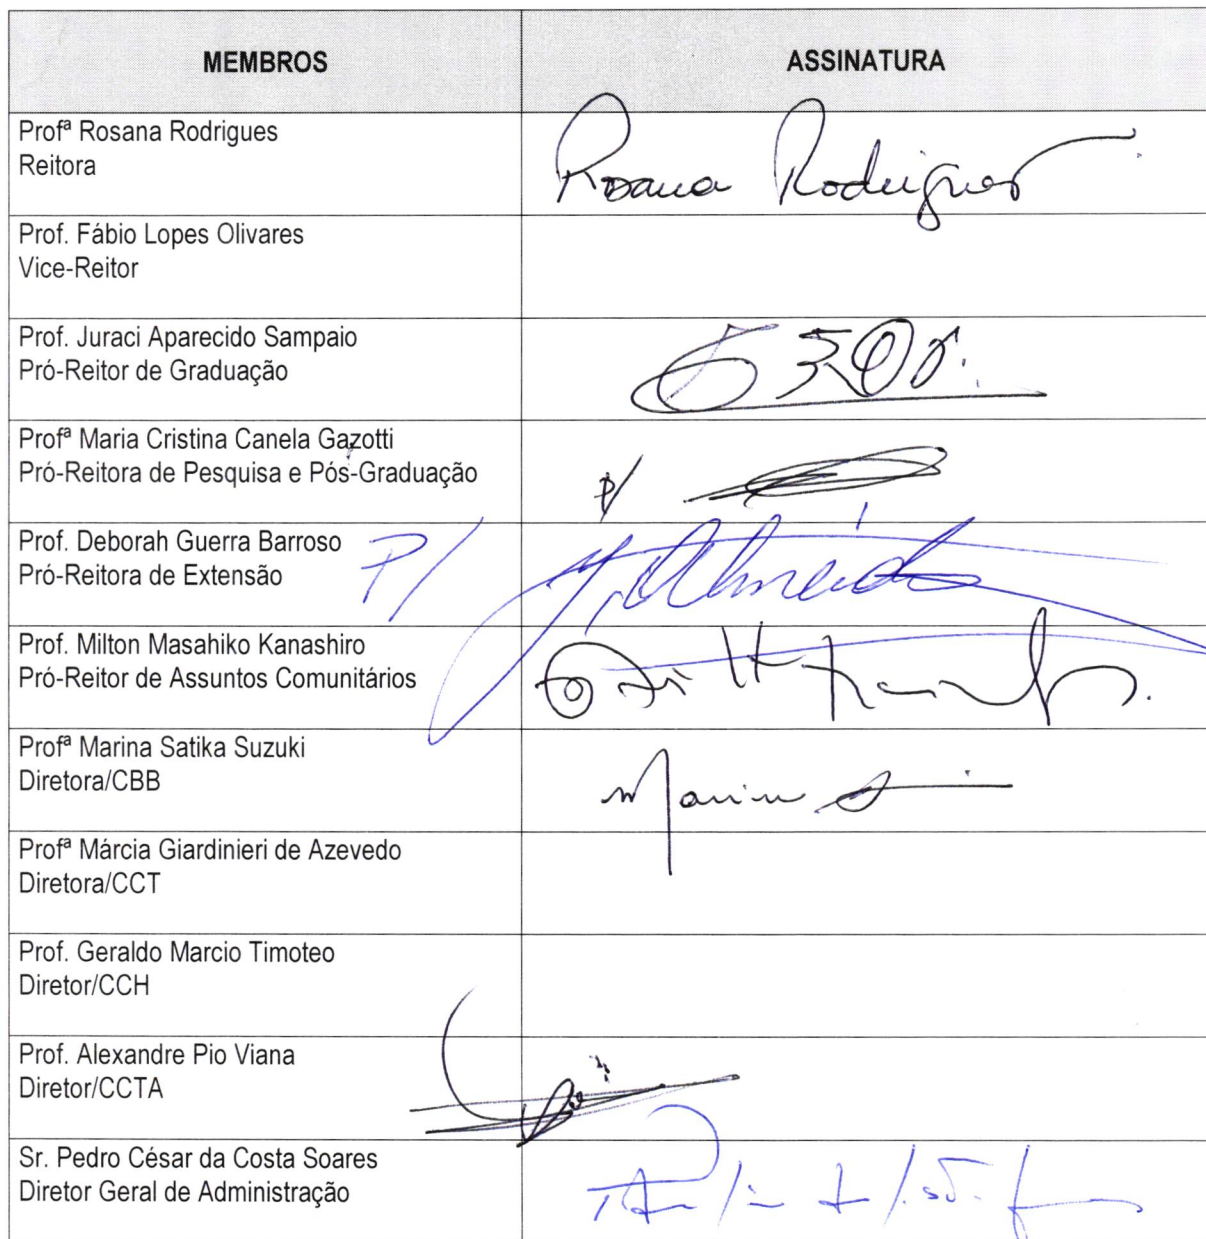 MEMBROS
ASSINATURA
Profª Rosana Rodrigues
Reitora
Rosana Rodrigues
Prof. Fábio Lopes Olivares
Vice-Reitor
Prof. Juraci Aparecido Sampaio
Pró-Reitor de Graduação
Profª Maria Cristina Canela Gazotti
Pró-Reitora de Pesquisa e Pós-Graduação
P/
Prof. Deborah Guerra Barroso
Pró-Reitora de Extensão
P/
Almeida
Prof. Milton Masahiko Kanashiro
Pró-Reitor de Assuntos Comunitários
Profª Marina Satika Suzuki
Diretora/CBB
Marina
Profª Márcia Giardinieri de Azevedo
Diretora/CCT
Prof. Geraldo Marcio Timoteo
Diretor/CCH
Prof. Alexandre Pio Viana
Diretor/CCTA
Sr. Pedro César da Costa Soares
Diretor Geral de Administração